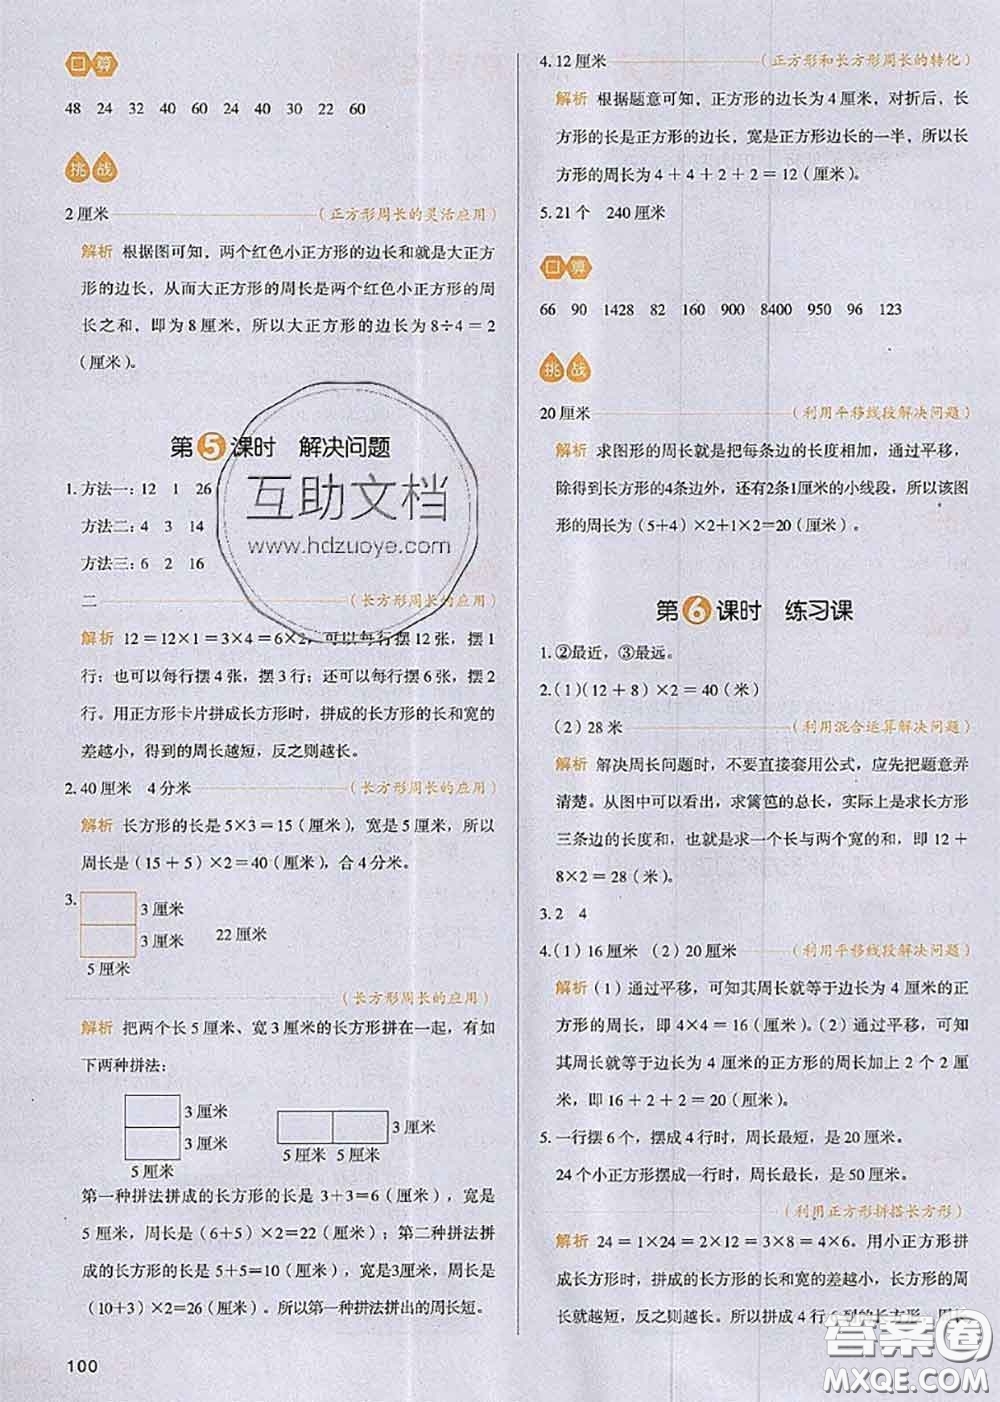 口算
48 24 32 40 60 24 40 30 22 60
挑战
2厘米 (正方形周长的灵活应用)
解析 根据图可知，两个红色小正方形的边长和就是大正方
形的边长，从而大正方形的周长是两个红色小正方形的周
长之和，即为8厘米，所以大正方形的边长为8÷4=2
(厘米)。
第5课时 解决问题
1.方法一：12 1 26
方法二：4 3 14
方法三：6 2 16
二 (长方形周长的应用)
解析 12=12×1=3×4=6×2，可以每行摆12张，摆1
行；也可以每行摆4张，摆3行；还可以每行摆6张，摆2
行。用正方形卡片拼成长方形时，拼成的长方形的长和宽的
差越小，得到的周长越短，反之则越长。
2.40厘米 4分米 (长方形周长的应用)
解析 长方形的长是5×3=15(厘米)，宽是5厘米，所以
周长是(15+5)×2=40(厘米)，合4分米。
3.
3厘米
3厘米
5厘米
22厘米
(长方形周长的应用)
解析 把两个长5厘米、宽3厘米的长方形拼在一起，有如
下两种拼法：
3厘米
3厘米
5厘米
3厘米
5厘米 5厘米
第一种拼法拼成的长方形的长是3+3=6(厘米)，宽是
5厘米，周长是(6+5)×2=22(厘米)；第二种拼法拼
成的长方形的长是5+5=10(厘米)，宽是3厘米，周长是
(10+3)×2=26(厘米)。所以第一种拼法拼出的周长短。
100
4.12厘米 (正方形和长方形周长的转化)
解析 根据题意可知，正方形的边长为4厘米，对折后，长
方形的长是正方形的边长，宽是正方形边长的一半，所以长
方形的周长为4+4+2+2=12(厘米)。
5.21个 240厘米
口算
66 90 1428 82 160 900 8400 950 96 123
挑战
20厘米 (利用平移线段解决问题)
解析 求图形的周长就是把每条边的长度相加，通过平移，
除得到长方形的4条边外，还有2条1厘米的小线段，所以该图
形的周长为(5+4)×2+1×2=20(厘米)。
第6课时 练习课
1.②最近，③最远。
2.(1)(12+8)×2=40(米)
(2)28米 (利用混合运算解决问题)
解析 解决周长问题时，不要直接套用公式，应先把题意弄
清楚。从图中可以看出，求篱笆的总长，实际上是求长方形
三条边的长度和，也就是求一个长与两个宽的和，即12+
8×2=28(米)。
3.2 4
4.(1)16厘米 (2)20厘米 (利用平移线段解决问题)
解析 (1)通过平移，可知其周长就等于边长为4厘米的正
方形的周长，即4×4=16(厘米)。(2)通过平移，可知
其周长就等于边长为4厘米的正方形的周长加上2个2厘
米，即16+2+2=20(厘米)。
5.一行摆6个，摆成4行时，周长最短，是20厘米。
24个小正方形摆成一行时，周长最长，是50厘米。
(利用正方形拼搭长方形)
解析 24=1×24=2×12=3×8=4×6。用小正方形拼
成长方形时，拼成的长方形的长和宽的差越小，长方形的周
长就越短，反之则越长。所以拼成4行6列的长方形，周长
互助文档
www.hdzuoye.com
答案圈
MXQE.COM